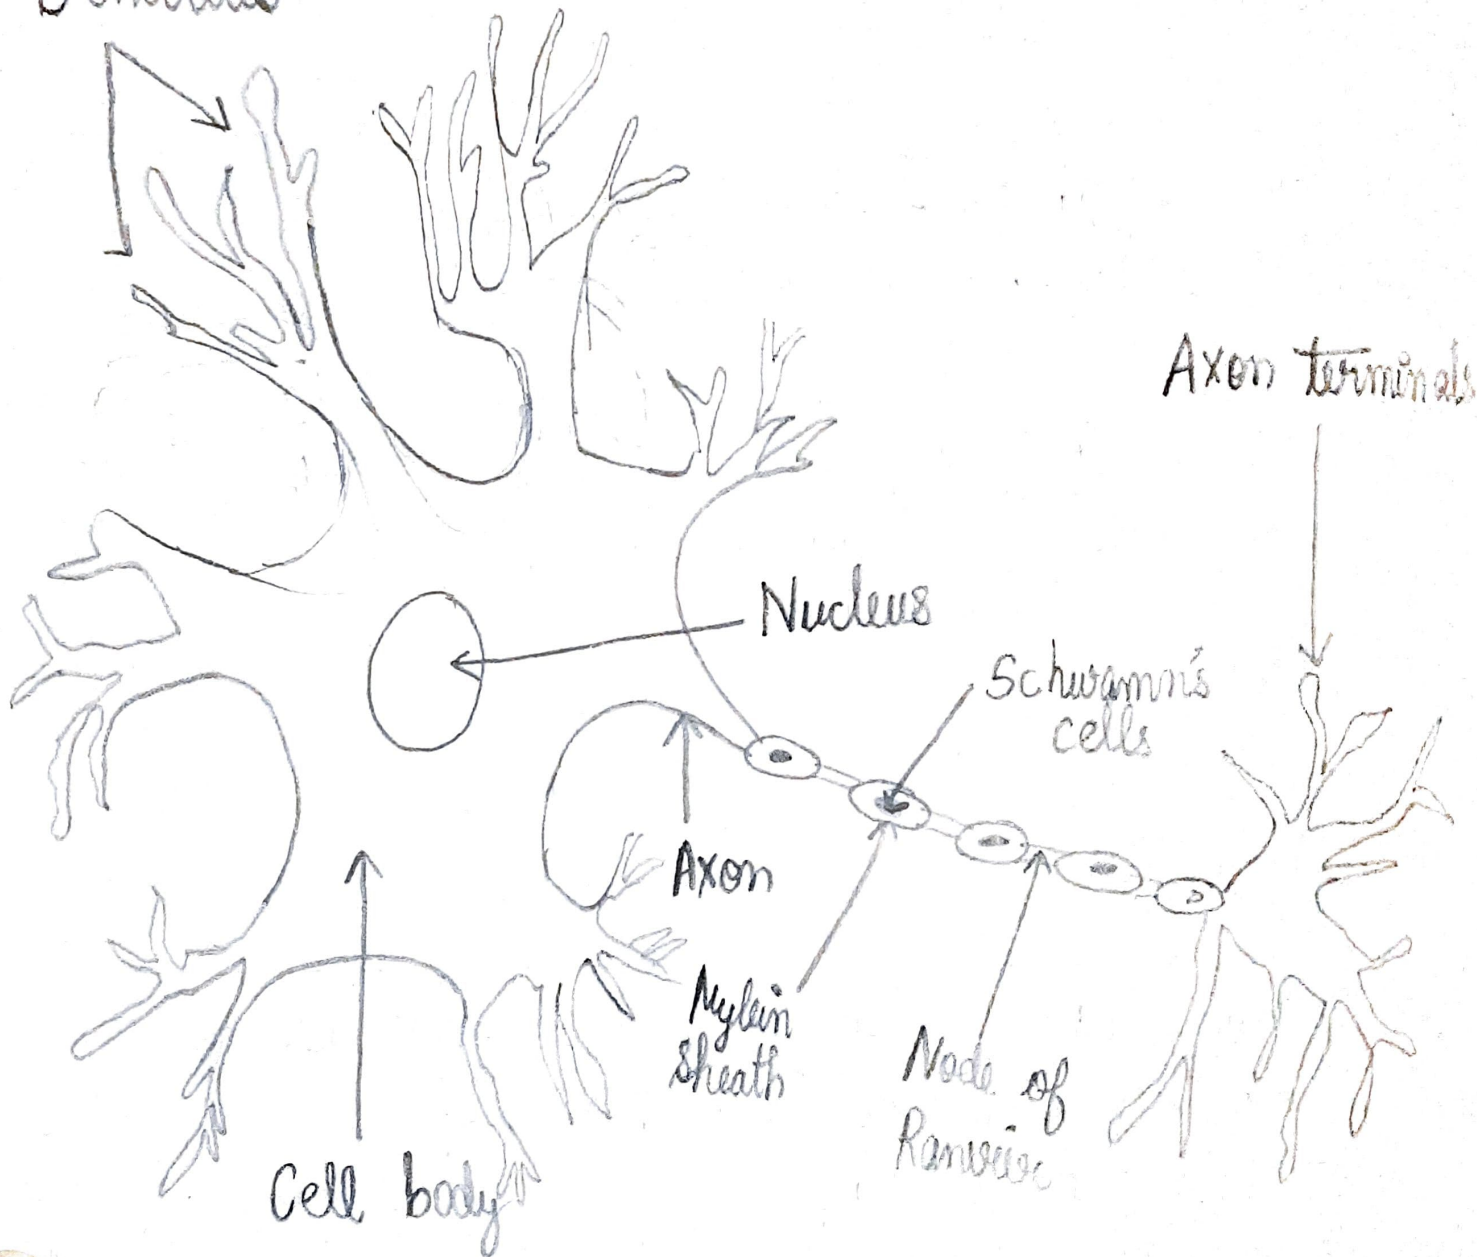 Axon terminals
Nucleus
Schwamn's
cells
Axon
Mylein
sheath
Node of
Cell body